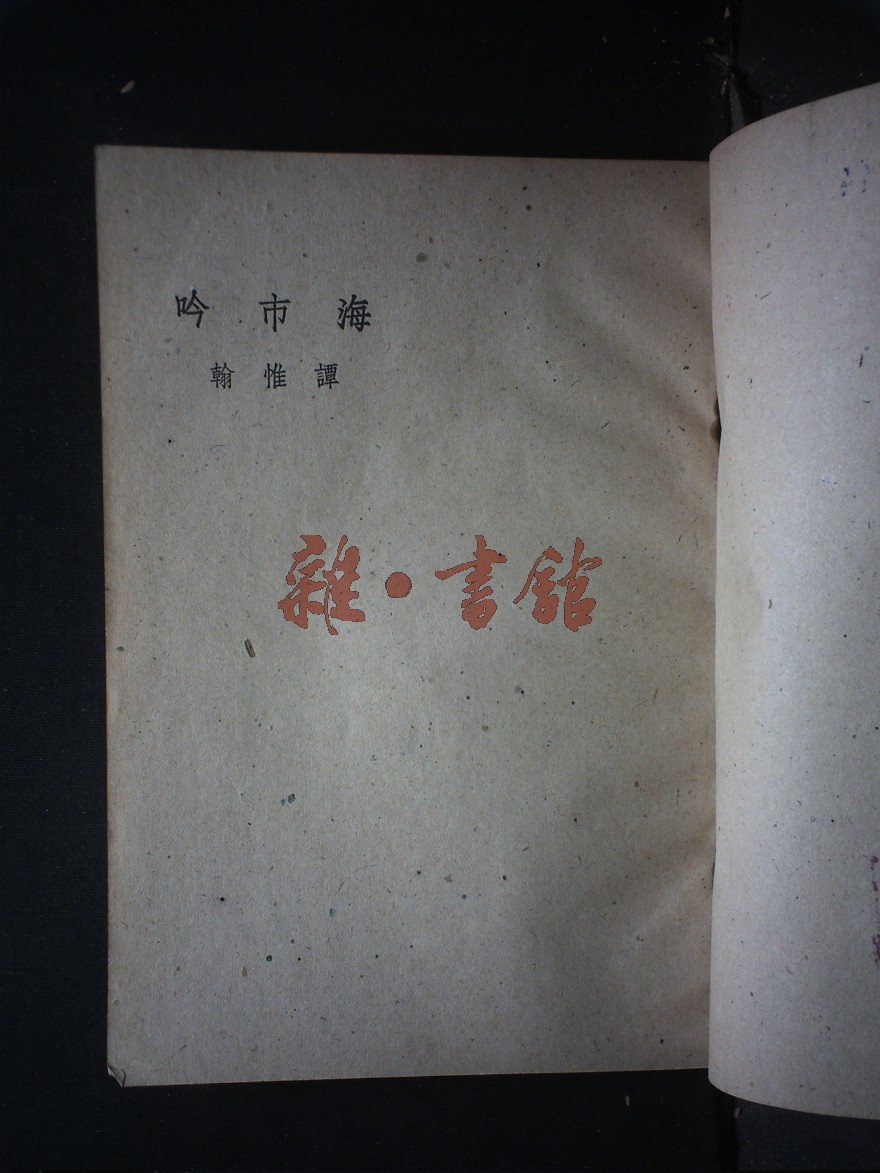 海市吟
譚惟翰
雜·書館